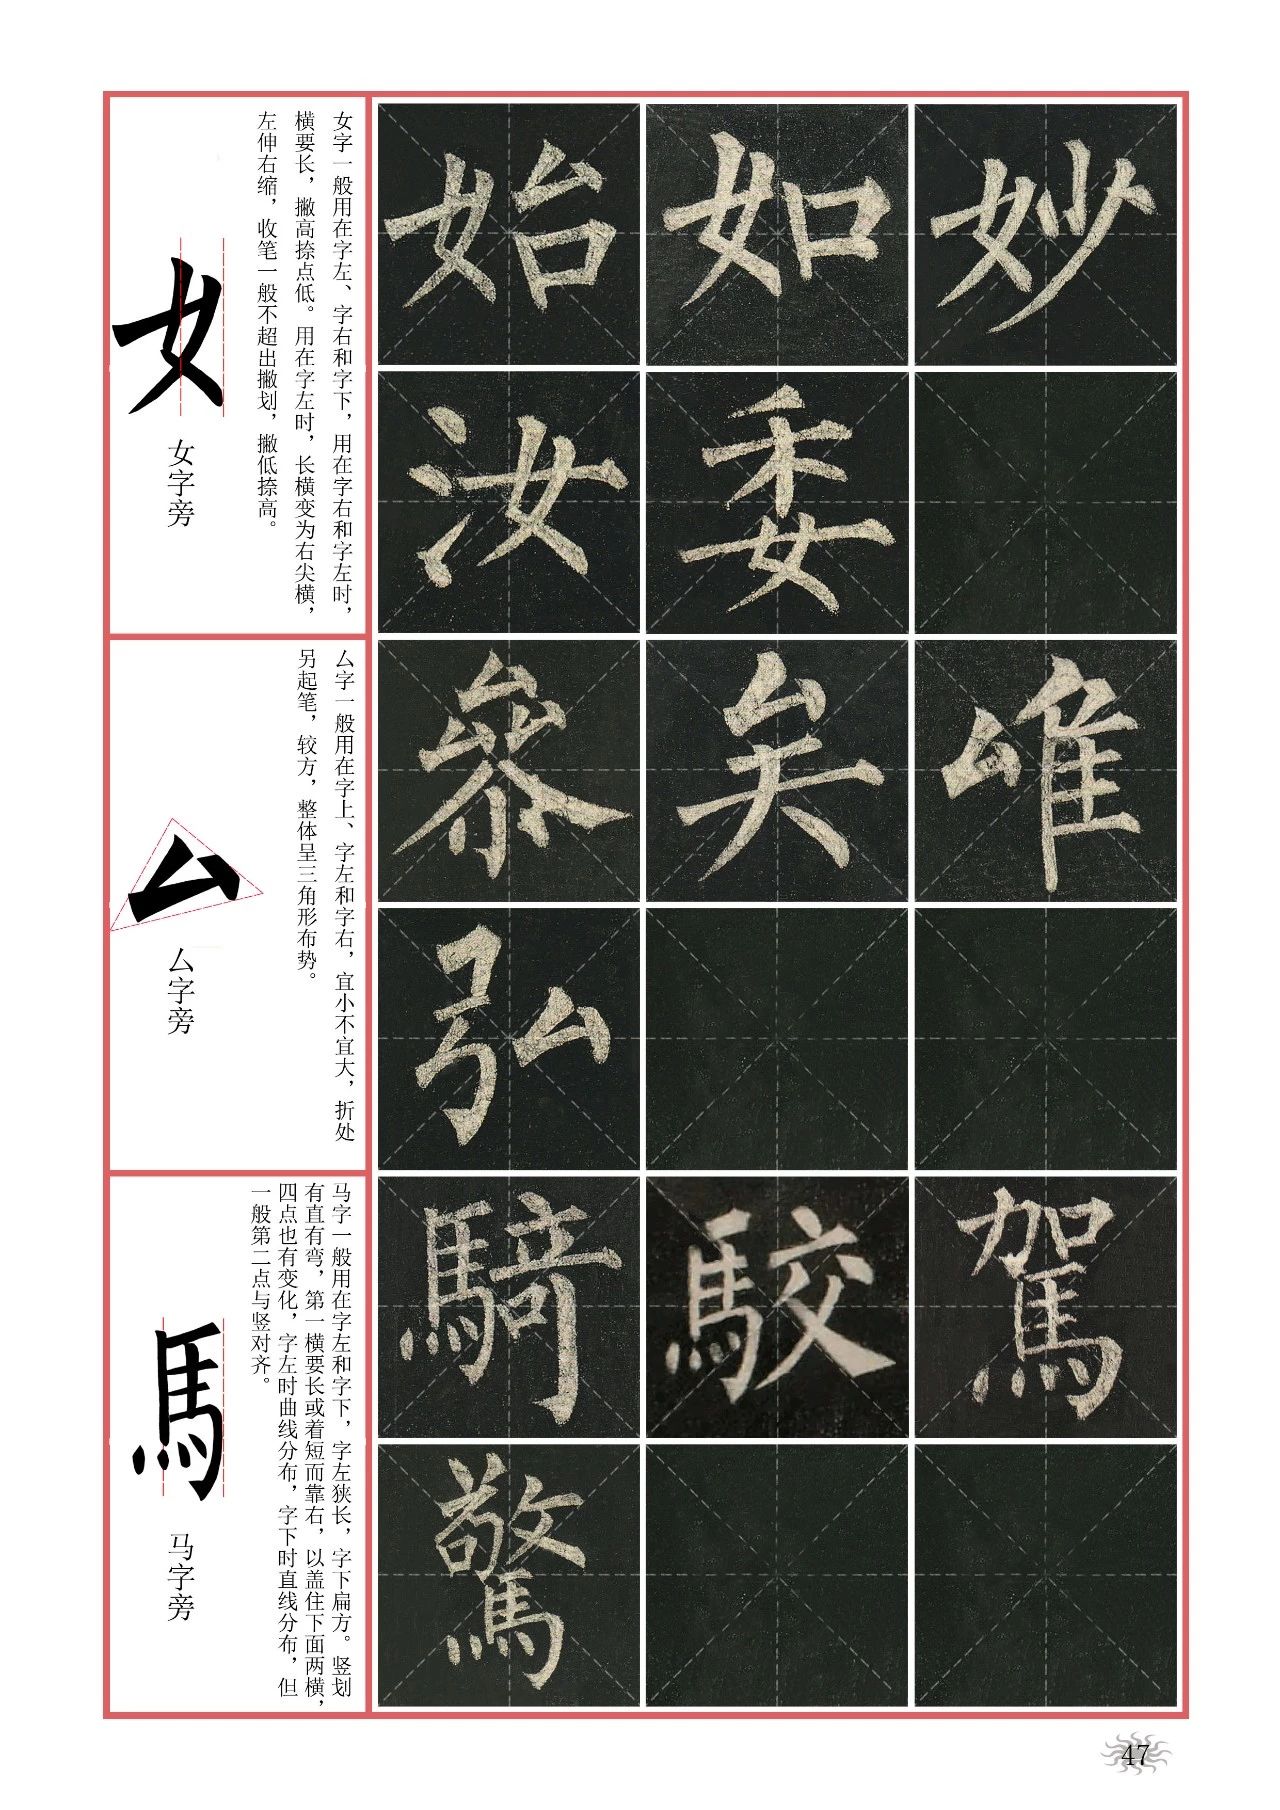 女字一般用在字左、字右和字下，用在字右和字左时，
横要长，撇高捺点低。用在字左时，长横变为右尖横，
左伸右缩，收笔一般不超出撇划，撇低捺高。
女
女字旁
始 如 妙
汝 委
厶字一般用在字上、字左和字右，宜小不宜大，折处
另起笔，较方，整体呈三角形布势。
厶
厶字旁
參 矣 唯
弘
马字一般用在字左和字下，字左狭长，字下扁方。竖划
有直有弯，第一横要长或着短而靠右，以盖住下面两横，
四点也有变化，字左时曲线分布，字下时直线分布，但
一般第二点与竖对齐。
馬
马字旁
騎 駮 駕
驚
47